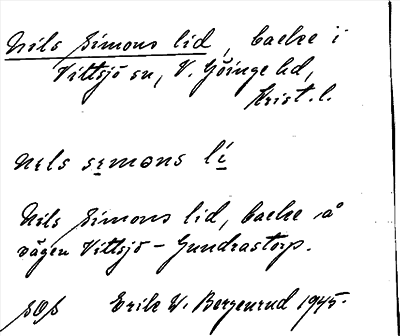 Nils Simons lid, backe i
Vittsjö sn, V. Göinge hd,
Krist. l.
nɪls sɪ̣məns lí̱
Nils Simons lid, backe å
vägen Vittsjö – Gundrastorp.
Erik W. Bergenrud 1945.